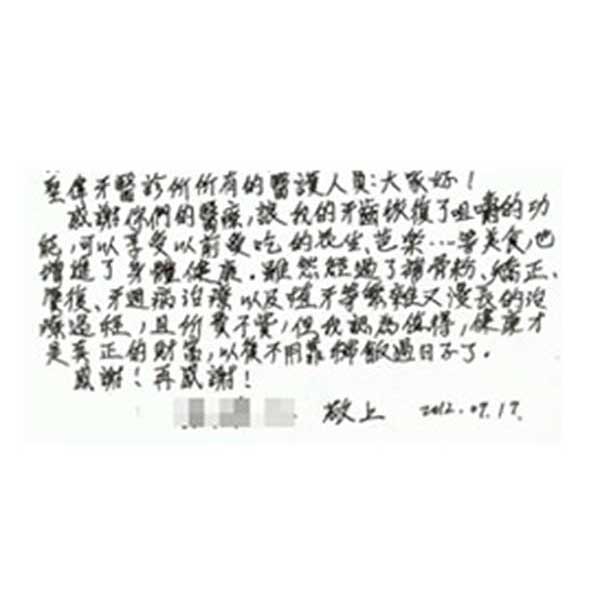 聖偉牙醫診所所有的醫護人員:大家好!
感謝你們的醫療,讓我的牙齒恢復了咀嚼的功
能,可以享受以前愛吃的花生、芭樂…等美食,也
增進了身體健康。雖然經過了補骨粉、矯正、
、牙週病治療以及植牙等繁雜又漫長的治
療過程,且價費不貲,但我認為值得,健康才
是真正的財富,以後不用靠稀飯過日子了。
感謝!再感謝!
敬上 2012.09.17.